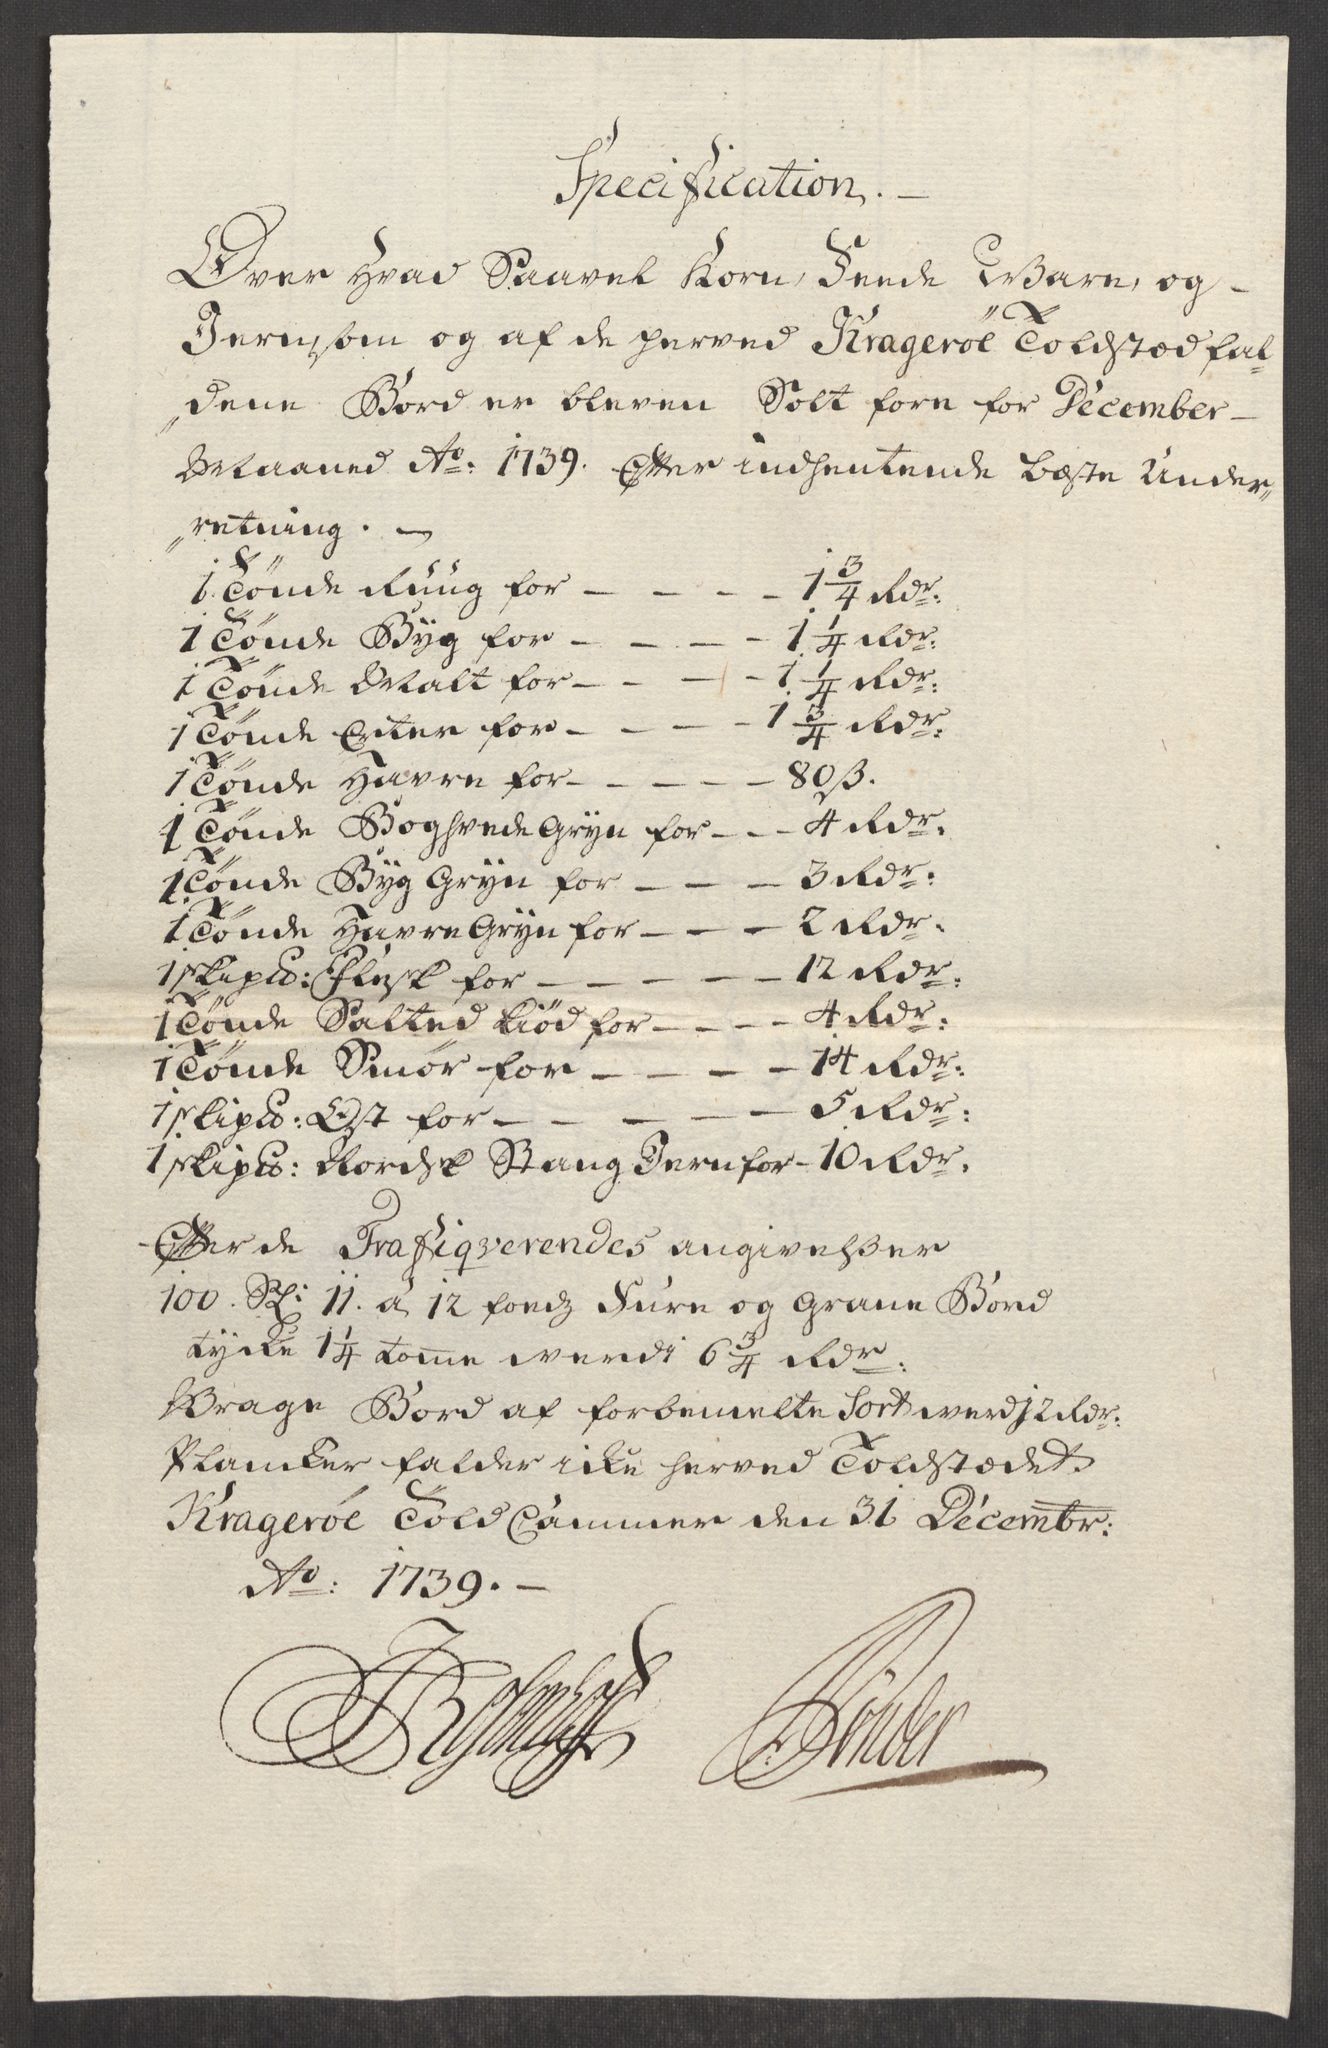 Specification. —
Over Hvad Saavel Korn, Feede Ware, og –
Jern, som og af de herved Kragerøe Toldstæd fal„
„dene Bord er bleven Solt forn for December –
Maaned Ao: 1739. Efter indhentende beste Under„
„retning. —
1 Tønde Ruug for — — — — 1 3/4 Rdr:
1 Tønde Byg for — — — — 1 1/4 Rdr:
1 Tønde Malt for — — — — 1 1/4 Rdr:
1 Tønde Erter for — — — — 1 3/4 Rdr:
1 Tønde Havre for — — — — 80 ß.
1 Tønde Boghvede Gryn for — — — 4 Rdr.
1 Tønde Byg Gryn for — — — 3 Rdr:
1 Tønde Havre Gryn for — — — 2 Rdr.
1 skipd: Flesk for — — — — — 12 Rdr.
1 Tønde Salted kiød for — — — — 4 Rdr:
1 Tønde Smør for — — — — 14 Rdr:
1 skipd: Ost for — — — — — 5 Rdr:
1 skipd: Nordsk Stang Jern for – 10 Rdr.
Efter de Trafiqverendes angivelßer
100. St: 11. à 12 foedz Fure og Grane Bord
tycke 1 1/4 tomme werdi 6 3/4 Rdr:
Wrage Bord af forbemelte Sort werdj 2 Rdr:
Plancker falder icke herved Toldstædet.
Kragerøe Told Cammer den 31 Decembr:
Ao: 1739. —